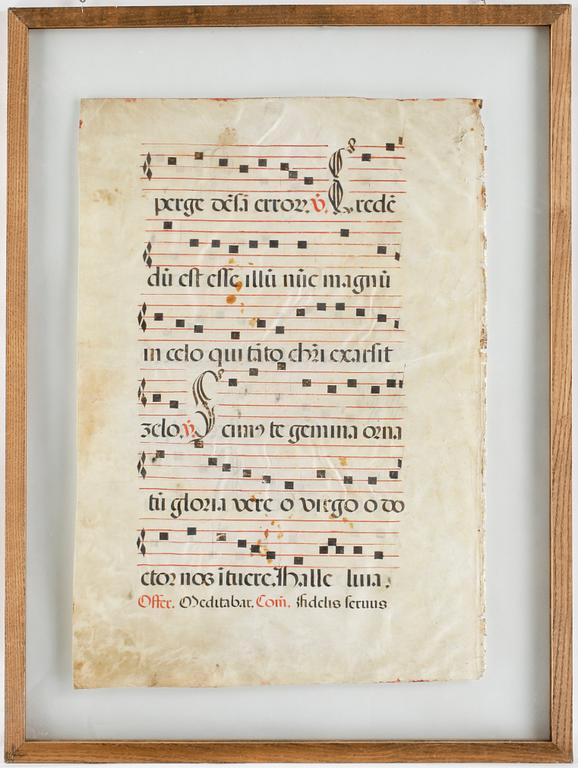 perge dēsā erroꝛ. ℣. Credē
dū est esse illū nūc magnū
in celo qui tāto chꝛi exarsit
zelo. ℣. Scimꝰ te gemina oꝛna
tū gloꝛia vere o virgo o do
ctoꝛ nos ītuere. Halle luia.
Offer. Meditabar. Com̄. Fidelis seruus